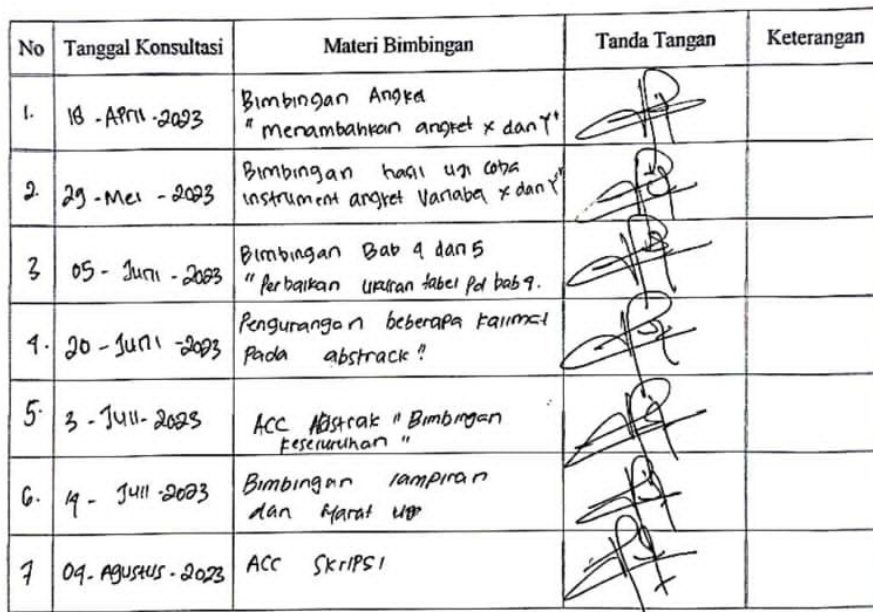 No Tanggal Konsultasi Materi Bimbingan Tanda Tangan Keterangan
1. 18 - April - 2023 Bimbingan Angket
" menambahkan angket x dan Y"
2. 29 - Mei - 2023 Bimbingan hasil uji coba
instrument angket Variabel x dan Y"
3 05 - Juni - 2023 Bimbingan Bab 4 dan 5
" Perbaikan ukuran tabel Pd bab 4.
4. 20 - Juni - 2023 Pengurangan beberapa kalimat
Pada abstrack "
5. 3 - Juli - 2023 ACC Abstrak " Bimbingan
keseluruhan "
6. 19 - Juli - 2023 Bimbingan lampiran
dan
7 09 - Agustus - 2023 ACC SKRIPSI